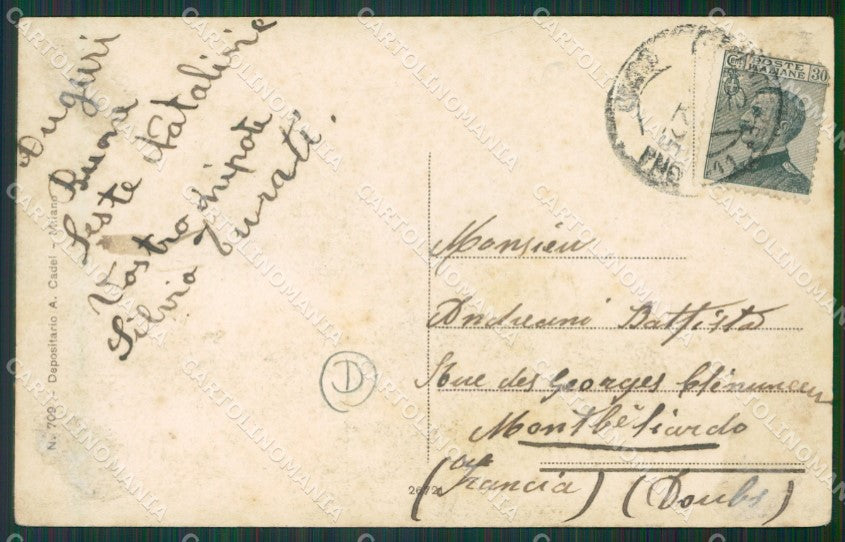 Auguri
Buone
Feste Natalizie
Vostro nipote
Silvia Turati.
Monsieu
Andreani Battista
Rue des Georges Clemenceau
Montbéliardo
(Francia) (Doubs)
D
2672
N. 709 - Depositario A. Cadel - Milano
POSTE
ITALIANE 30
CARTOLINOMANIA